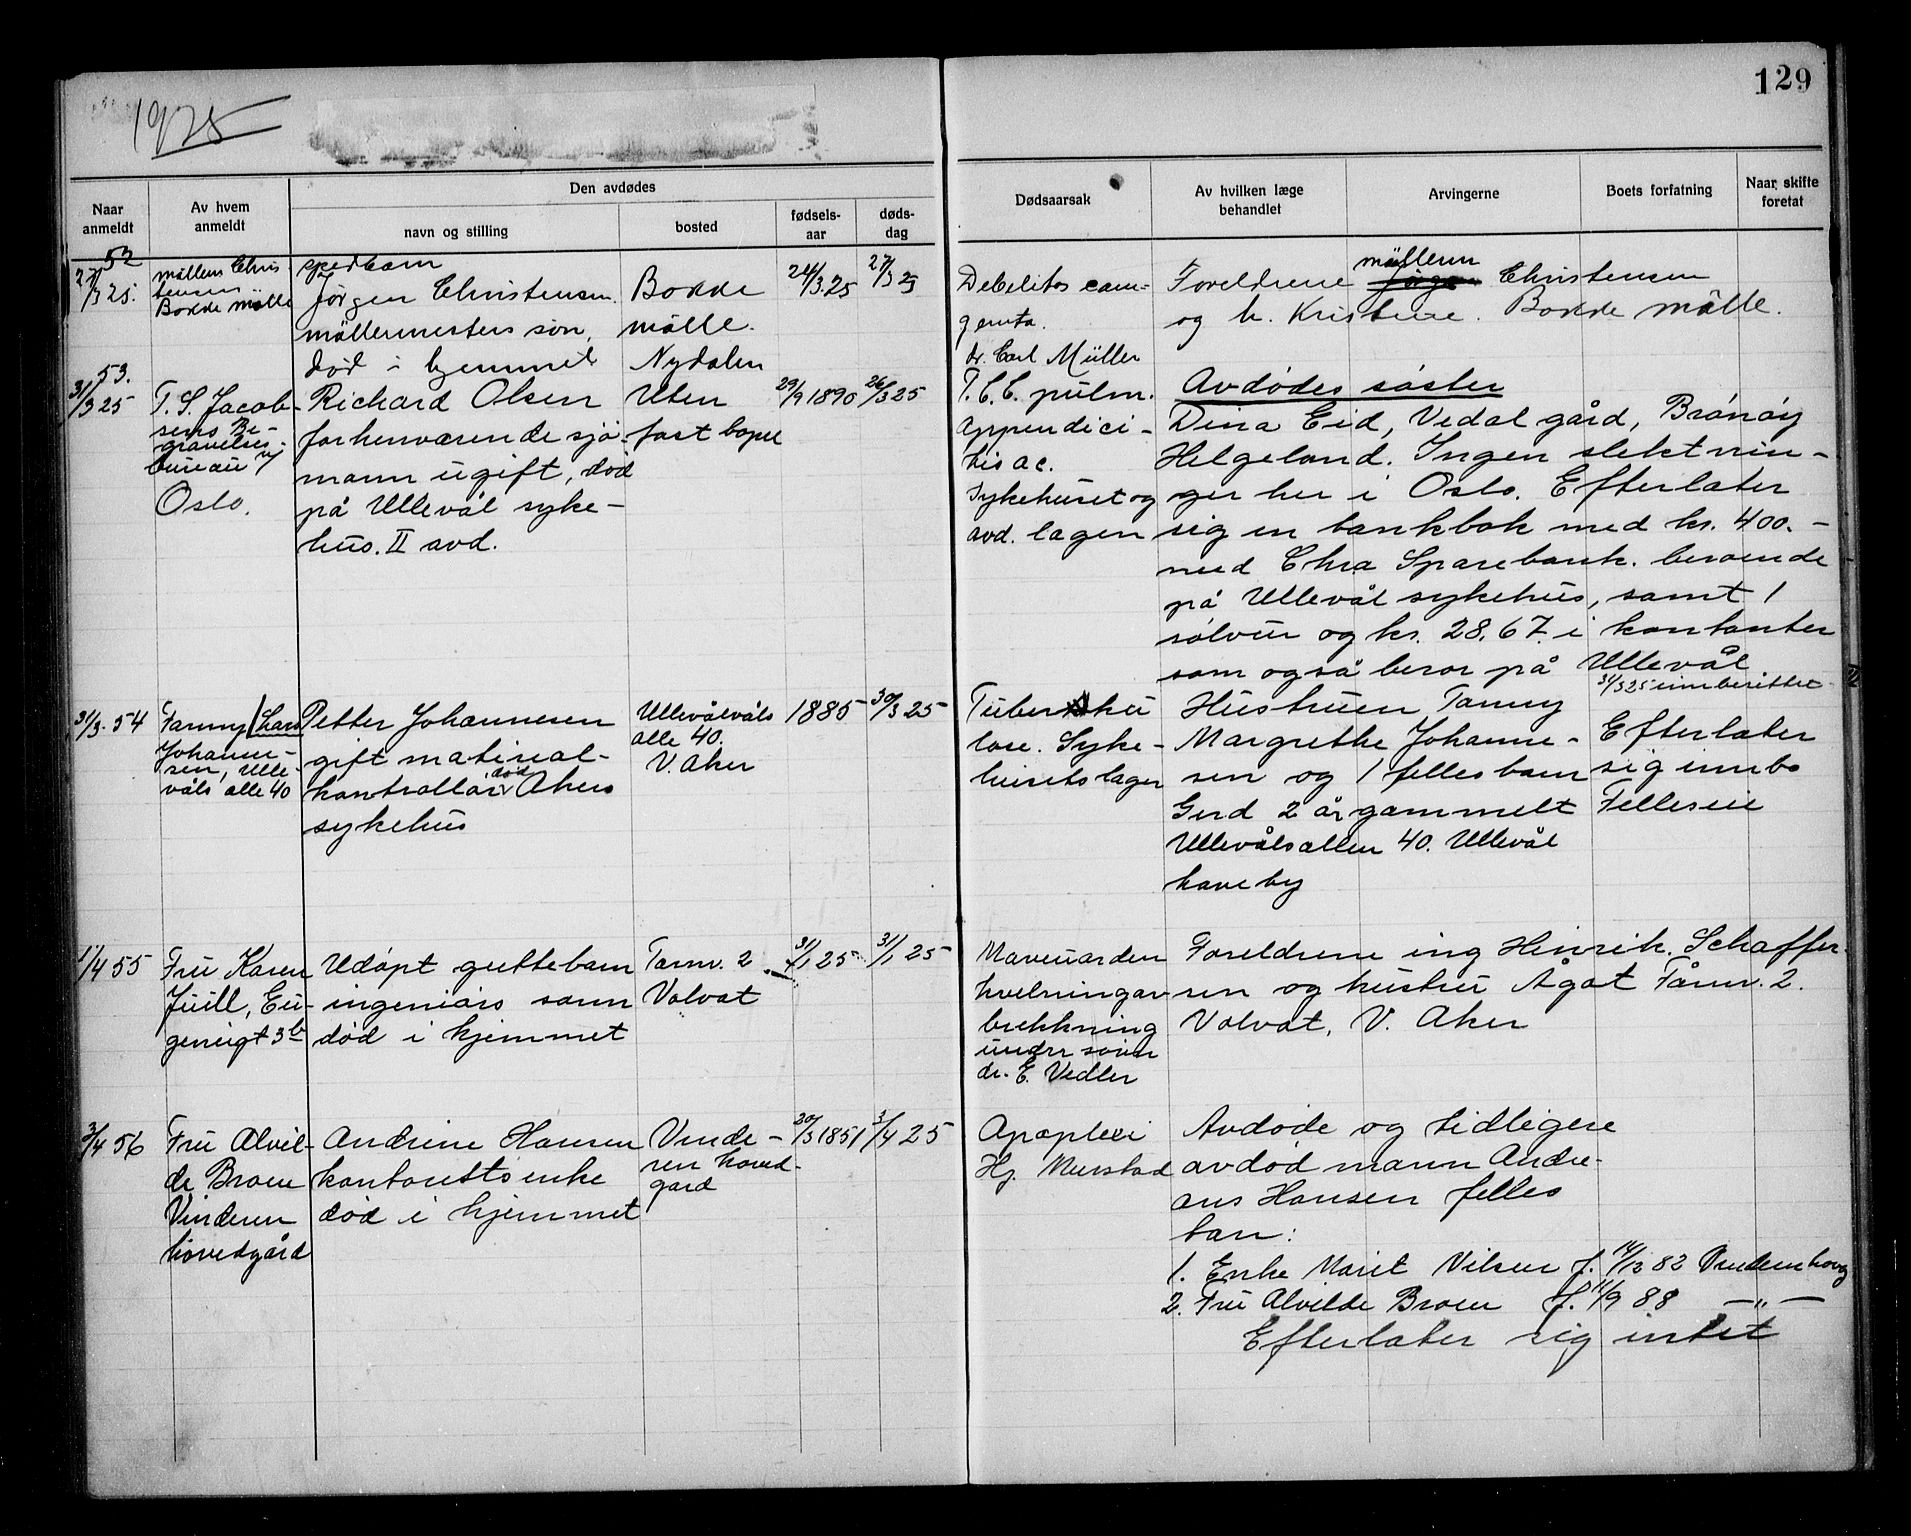 1925
129
Den avdødes
Naar anmeldt
Av hvem anmeldt
navn og stilling
bosted
fødsels-aar
døds-dag
Dødsaarsak
Av hvilken læge behandlet
Arvingerne
Boets forfatning
Naar skifte foretat
52
27/3 25.
møllens Chris
tensen
Bakke mølle
spedbarn
Jørgen Christensen
møllermesters søn,
død i hjemmet
Bakke
mølle.
Nydalen
24/3.25
27/3 25
Debelitas com-
genita.
dr. Carl Müller
Foreldrene mølleren Christensen
og h. Kristine. Bakke mølle.
53.
31/3 25
T. S. Jacob-
sens Be-
gravelses-
bureau
Oslo.
Richard Olsen
forhenværende sjø-
mann ugift, død
på Ullevål syke-
hus. II avd.
Uten
fast bopel
29/9 1890
26/3 25
T.C.C. pulm.
appendici-
tis ac.
Sykehuset og
avd. lagen
Avdødes søster
Dina Eid, Vedal gård, Brónöy
Helgeland. Ingen slektnin-
ger her i Oslo. Efterlater
sig en bankbok med kr. 400.-
med Chra Sparebank. beroende
på Ullevål sykehus, samt 1
sølvur og kr. 28,67. i kontanter
som også beror på Ullevål
31/3 25 innberettet
31/3. 54
Fanny Lars
Johanne-
sen, Ulle-
våls alle 40
Petter Johannesen
gift material-
kontrollør død Akers
sykehus
Ullevålvåls
alle 40.
V. Aker
1885
30/3 25
Tuberku
lose. Syke-
husets lager
Hustruen Fanny
Margrethe Johanne-
sen og 1 fellesbarn
Gerd 2 år gammelt
Ullevålsallen 40. Ullevål
haveby
Efterlater
sig innbo
Felleseie
1/4 55
Fru Karen
Juill, Eu-
geniigt 3b
Udøpt guttebarn
ingeniørs sønn
død i hjemmet
Tarnv. 2
Volvat
31/1 25
31/1 25
hvelningav
brekkning
under
dr. E. Vedler
Foreldrene ing Hinrik. Schaffer-
sen og hustru Ågot Tårnv. 2.
Volvat, V. Aker
3/4 56
Fru Alvil-
de Broen
Vinderen
hovedgård
Andrine Hansen
kontoristsenke
død i hjemmet
Vinde-
ren hoved-
gard
20/3 1851
3/4 25
Apoplexi
Hj. Murstad
Avdøde og tidligere
avdød mann Andre-
as Hansen felles
barn:
1. Enke Marit Nilsen f. 14/12 82 Vinderen hovg
2. Fru Alvilde Broen f. 11/9 88 — " —
Efterlater sig intet